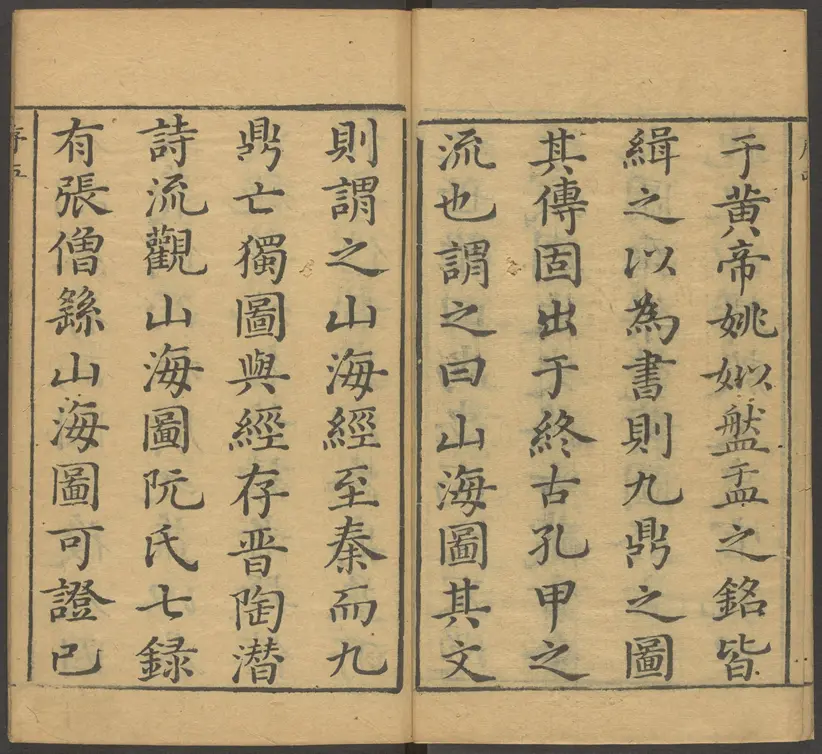 于黄帝姚姒盤盂之銘皆
緝之以為書則九鼎之圖
其傳固出于終古孔甲之
流也謂之曰山海圖其文
則謂之山海經至秦而九
鼎亡獨圖與經存晋陶潜
詩流觀山海圖阮氏七録
有張僧繇山海圖可證已